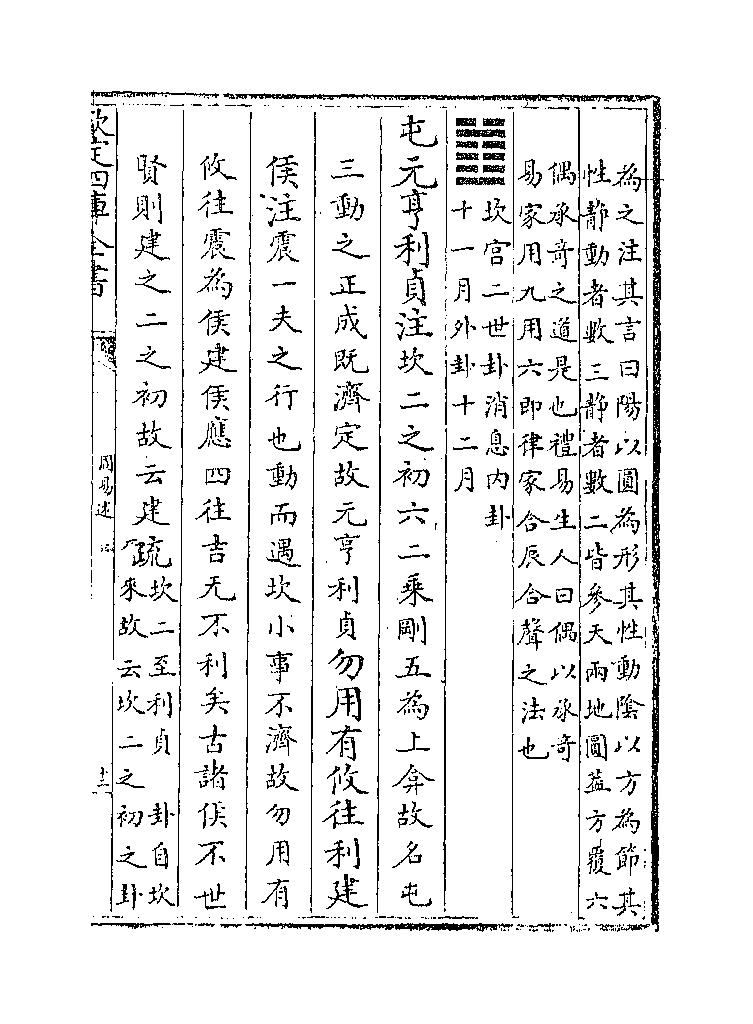 為之注其言曰陽以圓為形其性動陰以方為節其
性静動者數三静者數二皆參天兩地圓蓋方覆六
偶承竒之道是也禮易生人曰偶以承竒
易家用九用六即律家合辰合聲之法也
坎宫二世卦消息内卦
十一月外卦十二月
屯元亨利貞注坎二之初六二乘剛五為上弇故名屯
三動之正成既濟定故元亨利貞勿用有攸往利建
侯注震一夫之行也動而遇坎小事不濟故勿用有
攸往震為侯建侯應四往吉无不利矣古諸侯不世
賢則建之二之初故云建疏坎二至利貞 卦自坎
來故云坎二之初之卦
欽定四庫全書
周易述